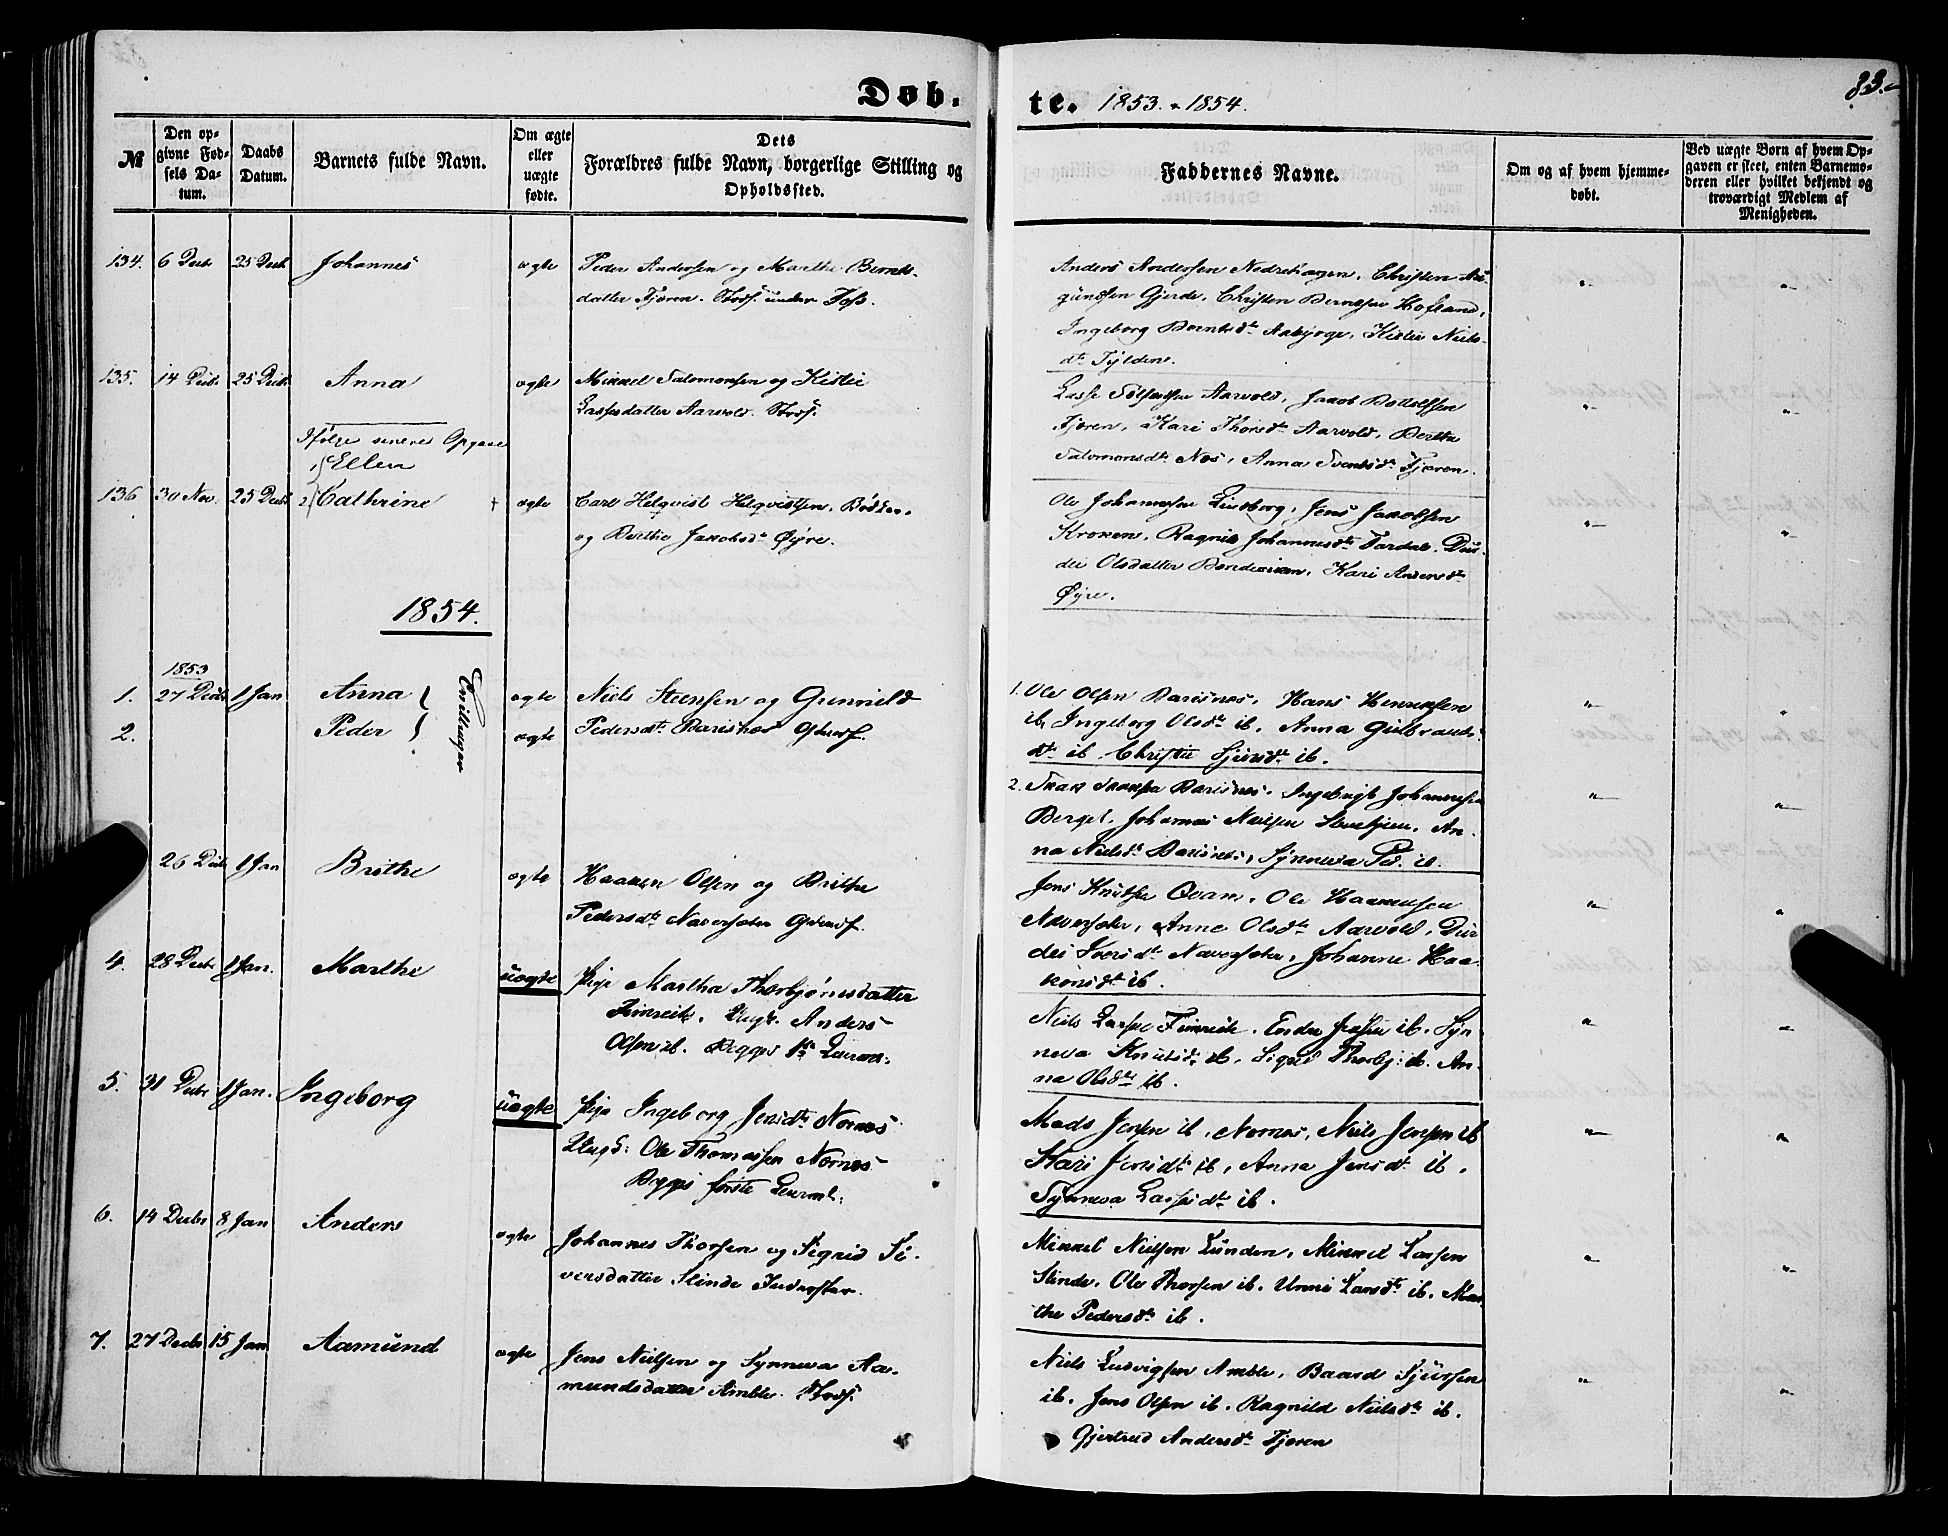 Døb. te. 1853. & 1854. 83.
№
Den op-
givne Fød-
sels Da-
tum.
Daabs
Datum.
Barnets fulde Navn.
Om ægte
eller
uægte
fødte.
Dets
Forældres fulde Navn, borgerlige Stilling og
Opholdssted.
Faddernes Navne.
Om og af hvem hjemme-
døbt.
Ved uægte Børn af hvem Op-
gaven er skeet, enten Barnemo-
deren eller hvilket bekjendt og
troværdigt Medlem af
Menigheden.
134. 6 Decb. 25 Decb. Johannes ægte Peder Andersen og Marthe Bernts-
datter Fjøren. Strdf. under
Anders Andersen Nedrehagen, Christen
Gjerde, Christen Berntsen Hofland,
Ingeborg Berntsdtr. Kistie Niels-
dtr. Tylden.
135. 14 Decb. 25 Decb. Anna ægte Mikkel Salomonsen og Kistie
Lassesdatter Aarvold. Strdf.
Lasse Aarvold, Jacob Bottolfsen
Fjøren, Kari Thorsdtr. Aarvold, Berthe
Salomonsdtr. Næs, Anna Fjøren.
Ifølge senere Opgave
1, Ellen
136 30 Nov. 25 Decb. 2 Cathrine + ægte Carl Helqvist Helqvistsen, Bødker,
og Berthe Jakobsdtr. Øyre.
Ole Johannesen Lindborg, Jens Jacobsen
Kroken, Ragnild Johannesdtr. Fardal, Dur-
dei Olsdatter Kari Andersdtr.
Øyre.
1854.
1853
1. 27 Decbr 1 Jan Anna } Tvillinger ægte Niels Steensen og Gunnild
2. Peder } ægte Pedersdtr. Barsnæs Gbrdf.
1. Ole Olsen Barsnæs, Hans Henriksen
ib, Ingeborg Olsdtr. ib. Anna Gulbrands-
dtr. ib. Christie Sjursdtr. ib.
2. Barsnæs, Ingebrigt Johannesen
Berget, Johannes Nielsen An-
na Nielsdtr. Barsnæs, Synneva Ped. ib.
26 Decbr 1 Jan Brithe ægte Haaken Olsen og Brithe
Pedersdtr. Navarsete Gbrdf.
Jens Knutsen Qvam, Ole Haakensen
Navarsete, Anne Olsdtr. Aarvold, Dur-
dei Iversdtr. Navarsete, Johanne Haa-
konsdtr. ib.
4. 28 Decbr 1 Jan. Marthe uægte Pige Martha Thorbjørnsdatter
Fimreite. Ungk. Anders
Olsen ib. Begges 1ste Leierm:
Niels Lassen Fimreite, Endre ib. Syn-
neva Knutsdtr. ib. Sigrid Thorbj: ib. An-
na Olsdtr. ib.
5. 31 Decbr 1 Jan. Ingeborg uægte Pige Ingeborg Jensdtr. Nornes
Ungk: Ole Thomassen Nornes
Begges første Leierml:
Mads Jensen ib, Nornes, Niels Jensen ib
Kari Jensdtr. ib, Anna Jensdtr. ib.
Synneva Lassesdtr. ib.
6. 14 Decbr 8 Jan Anders ægte Johannes Thorsen og Sigrid Si-
versdatter Slinde Inderster.
Mikkel Nielsen Lunden, Mikkel Larsen
Slinde, Ole Thorsen ib. Unni Larsdtr. ib. Mar-
the Pedersdtr. ib.
7. 27 Decbr 15 Jan Aamund ægte Jens Nielsen og Synneva Aa-
mundsdatter Amble. Strdf.
Niels Ludvigsen Amble, Baard Sjursen
ib. Jens Olsen ib. Ragnild Nielsdtr. ib.
Gjertrud Andersdtr. Fjøren